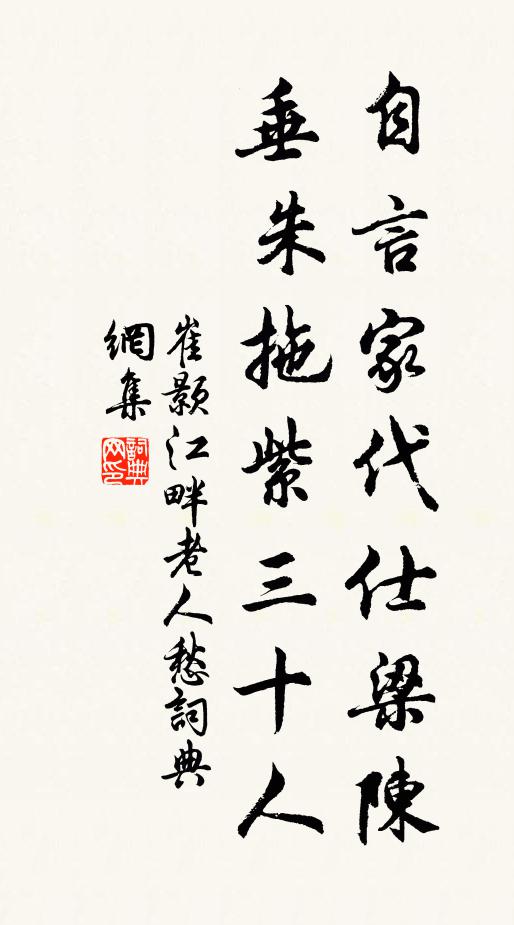 自言家代仕梁陳
垂朱拖紫三十人
崔顥江畔老人愁詞典
網集
詞典
网印